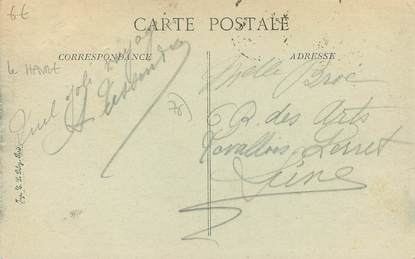 6€
CARTE POSTALE
CORRESPONDANCE
ADRESSE
Le HAVRE
Quel joli voyage
76)
Melle Broc
6 R. des Arts
Levallois Perret
Seine